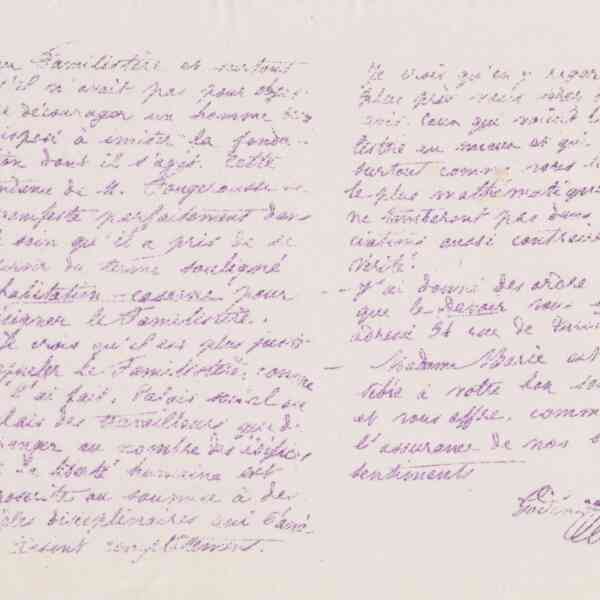 Familistère et surtout
s'il n'avait pas pour objet
de décourager un homme
disposé à imiter la fonda-
tion dont il s'agit. Cette
tendance de M. Fougerousse se
manifeste parfaitement dans
le soin qu'il a pris de se
servir du terme souligné
habitation-caserne pour
désigner le Familistère.
Je crois qu'il est plus juste
d'appeler le Familistère, comme
je l'ai fait, Palais social ou
Palais des travailleurs que de
ranger au nombre des édifices
où la liberté humaine est
proscrite ou soumise à des
règles disciplinaires qui
complètement.
Je crois qu'en y regar
plus près vous serez
avis. Ceux qui voient le
tère en mieux et qui
surtout comme vous le
le plus mathématique
ne tomberont pas dans
ciations aussi contraires
vérité.
J'ai donné des ordres
que le Devoir vous
adressé 34 rue de
Madame Marie est
sible à votre bon sou
et vous offre, comme
l'assurance de nos
sentiments
Godin